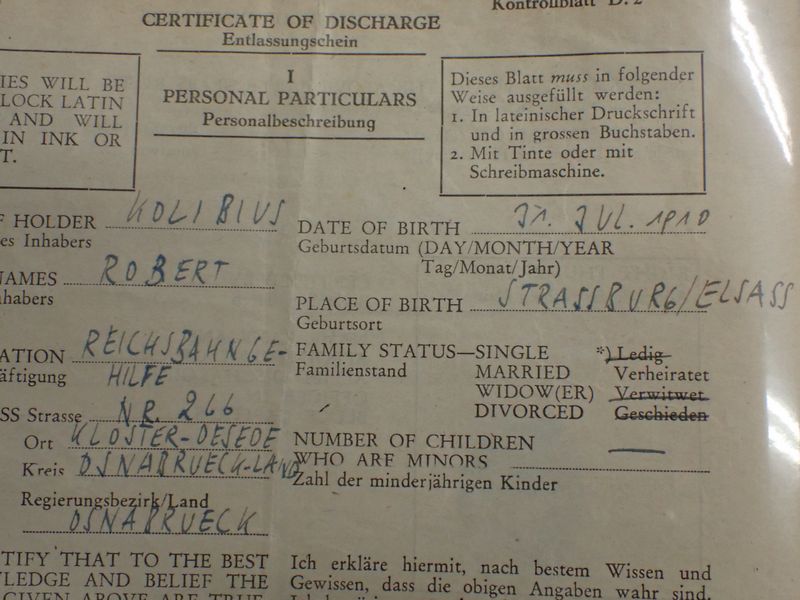 Kontrollblatt D.2
CERTIFICATE OF DISCHARGE
Entlassungschein
I
PERSONAL PARTICULARS
Personalbeschreibung
IES WILL BE
LOCK LATIN
AND WILL
IN INK OR
T.
Dieses Blatt muss in folgender
Weise ausgefüllt werden:
1. In lateinischer Druckschrift
und in grossen Buchstaben.
2. Mit Tinte oder mit
Schreibmaschine.
F HOLDER KOLIBIUS
es Inhabers
NAMES ROBERT
nhabers
ATION REICHSBAHNGE-
äftigung HILFE
SS Strasse NR. 266
Ort KLOSTER-OESEDE
Kreis OSNABRUECK-LAND
Regierungsbezirk/Land
OSNABRUECK
DATE OF BIRTH JUL. 1910
Geburtsdatum (DAY/MONTH/YEAR
Tag/Monat/Jahr)
PLACE OF BIRTH STRASSBURG/ELSASS
Geburtsort
FAMILY STATUS—SINGLE *) Ledig
Familienstand MARRIED Verheiratet
WIDOW(ER) Verwitwet
DIVORCED Geschieden
NUMBER OF CHILDREN
WHO ARE MINORS —
Zahl der minderjährigen Kinder
TIFY THAT TO THE BEST
LEDGE AND BELIEF THE
GIVEN ABOVE ARE TRUE.
Ich erkläre hiermit, nach bestem Wissen und
Gewissen, dass die obigen Angaben wahr sind.